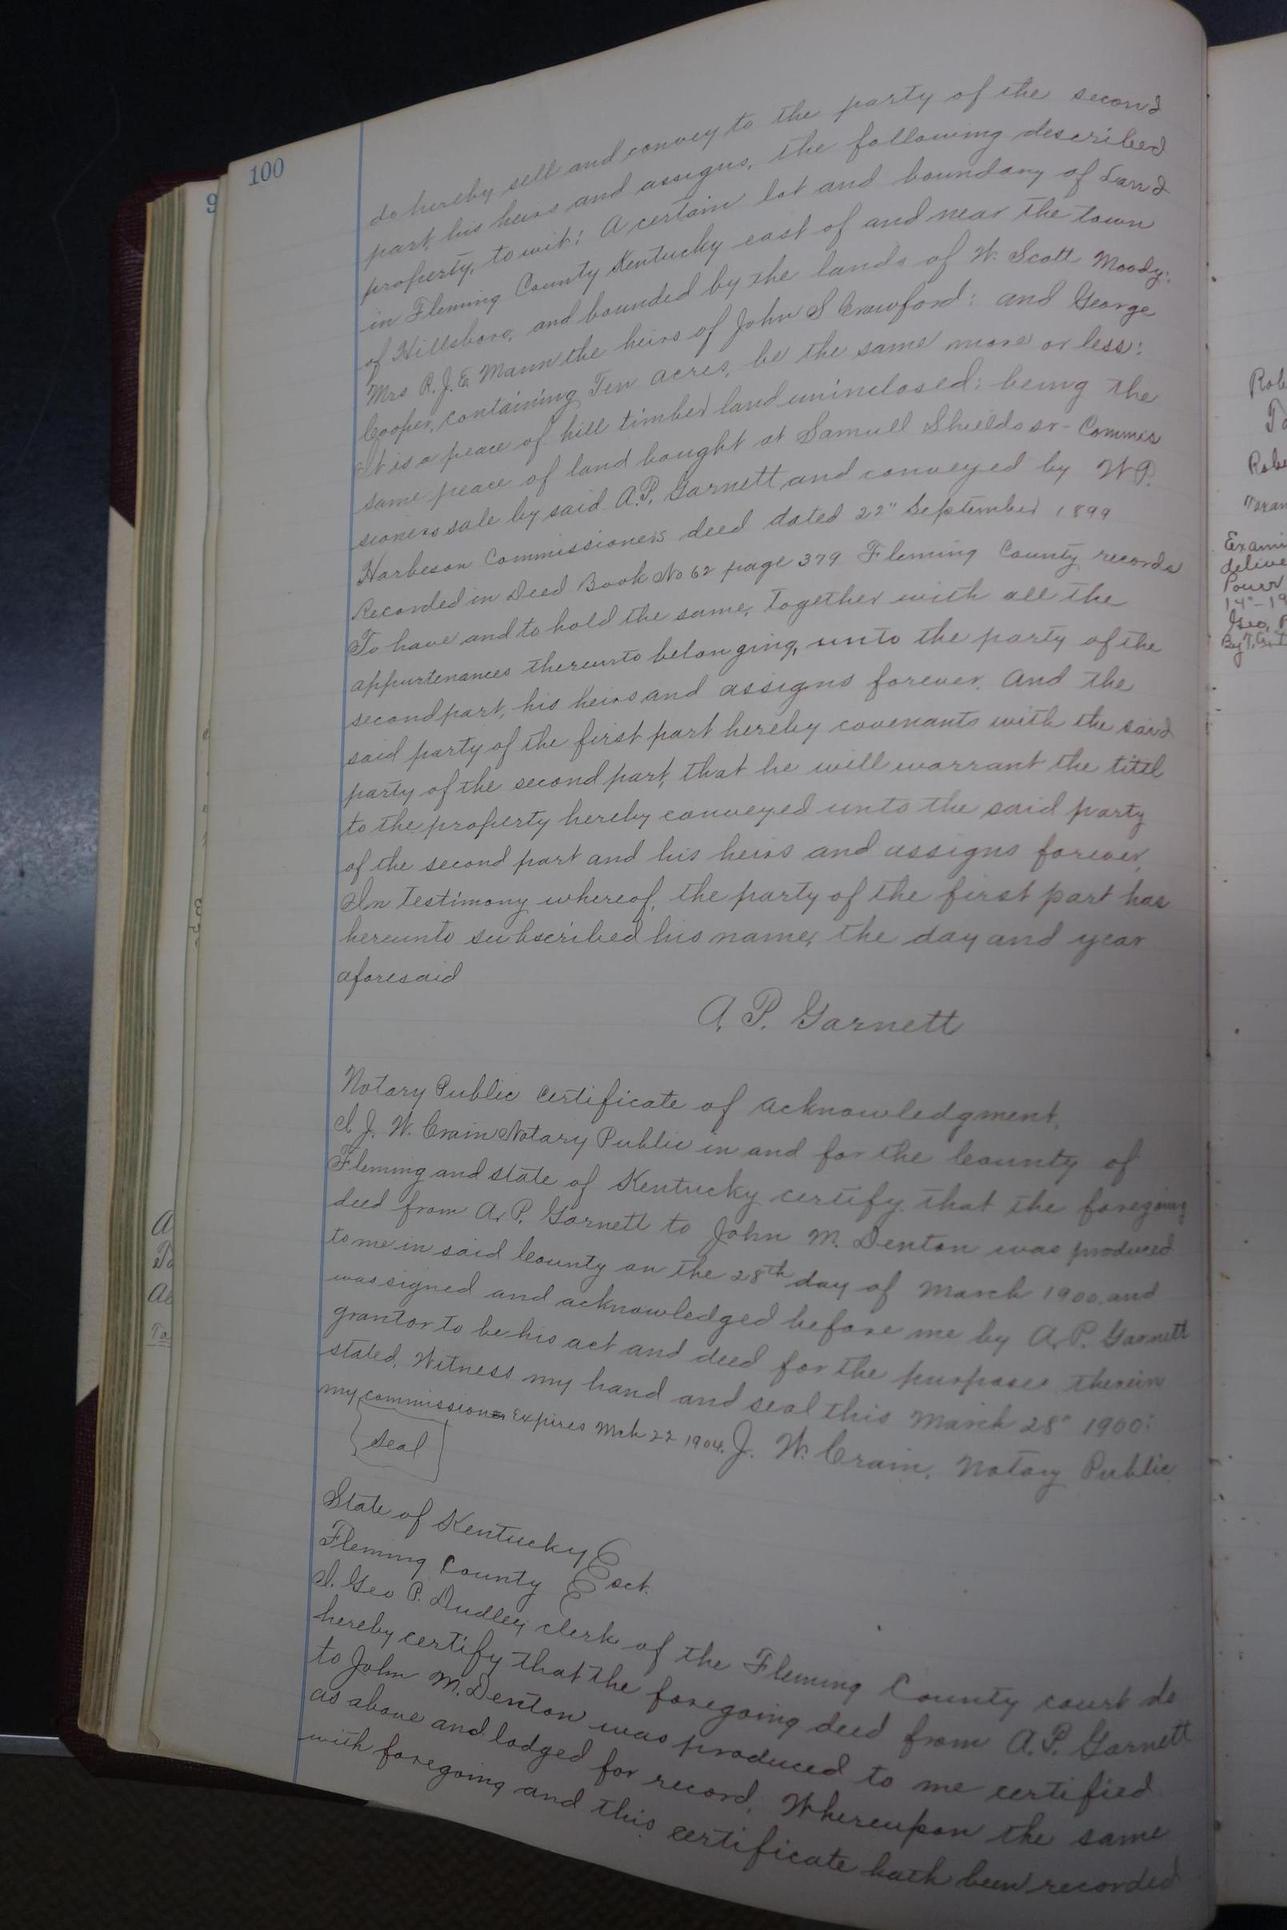 100
do hereby sell and convey to the party of the second
part, his heirs and assigns, the following described
property, to wit: A certain lot and boundary of Land
in Fleming County Kentucky east of and near the town
of Hillsboro, and bounded by the lands of W. Scott Moody;
Mrs R. J. E. Mann the heirs of John S Crawford; and George
Cooper, containing Ten acres, be the same more or less:
It is a peace of hill timber land uninclosed; being the
same peace of land bought at Samuel Shields sr- Commis
sioners sale by said A. P. Garnett and conveyed by W. P.
Harbeson Commissioners deed dated 22" September 1899
Recorded in Deed Book No 62 page 379 Fleming County records
To have and to hold the same, together with all the
appurtenances thereunto belonging, unto the party of the
second part, his heirs and assigns forever. And the
said party of the first part hereby covenants with the said
party of the second part, that he will warrant the titel
to the property hereby conveyed unto the said party
of the second part and his heirs and assigns forever,
In testimony whereof, the party of the first part has
hereunto subscribed his name, the day and year
aforesaid
A. P. Garnett
Notary Public Certificate of acknowledgment.
I J. W. Crain Notary Public in and for the County of
Fleming and state of Kentucky certify that the foregoing
deed from A. P. Garnett to John M. Denton was produced
to me in said County on the 28th day of March 1900. and
was signed and acknowledged before me by A. P. Garnett
grantor to be his act and deed for the purposes therein
stated. Witness my hand and seal this March 28" 1900:
my commission Expires Mch 22 1904. J. W. Crain, Notary Public
Seal
State of Kentucky
Fleming County Sct.
I. Geo P. Dudley clerk of the Fleming County court do
hereby certify that the foregoing deed from A. P. Garnett
to John M. Denton was produced to me certified
as above and lodged for record. Whereupon the same
with foregoing and this certificate hath been recorded